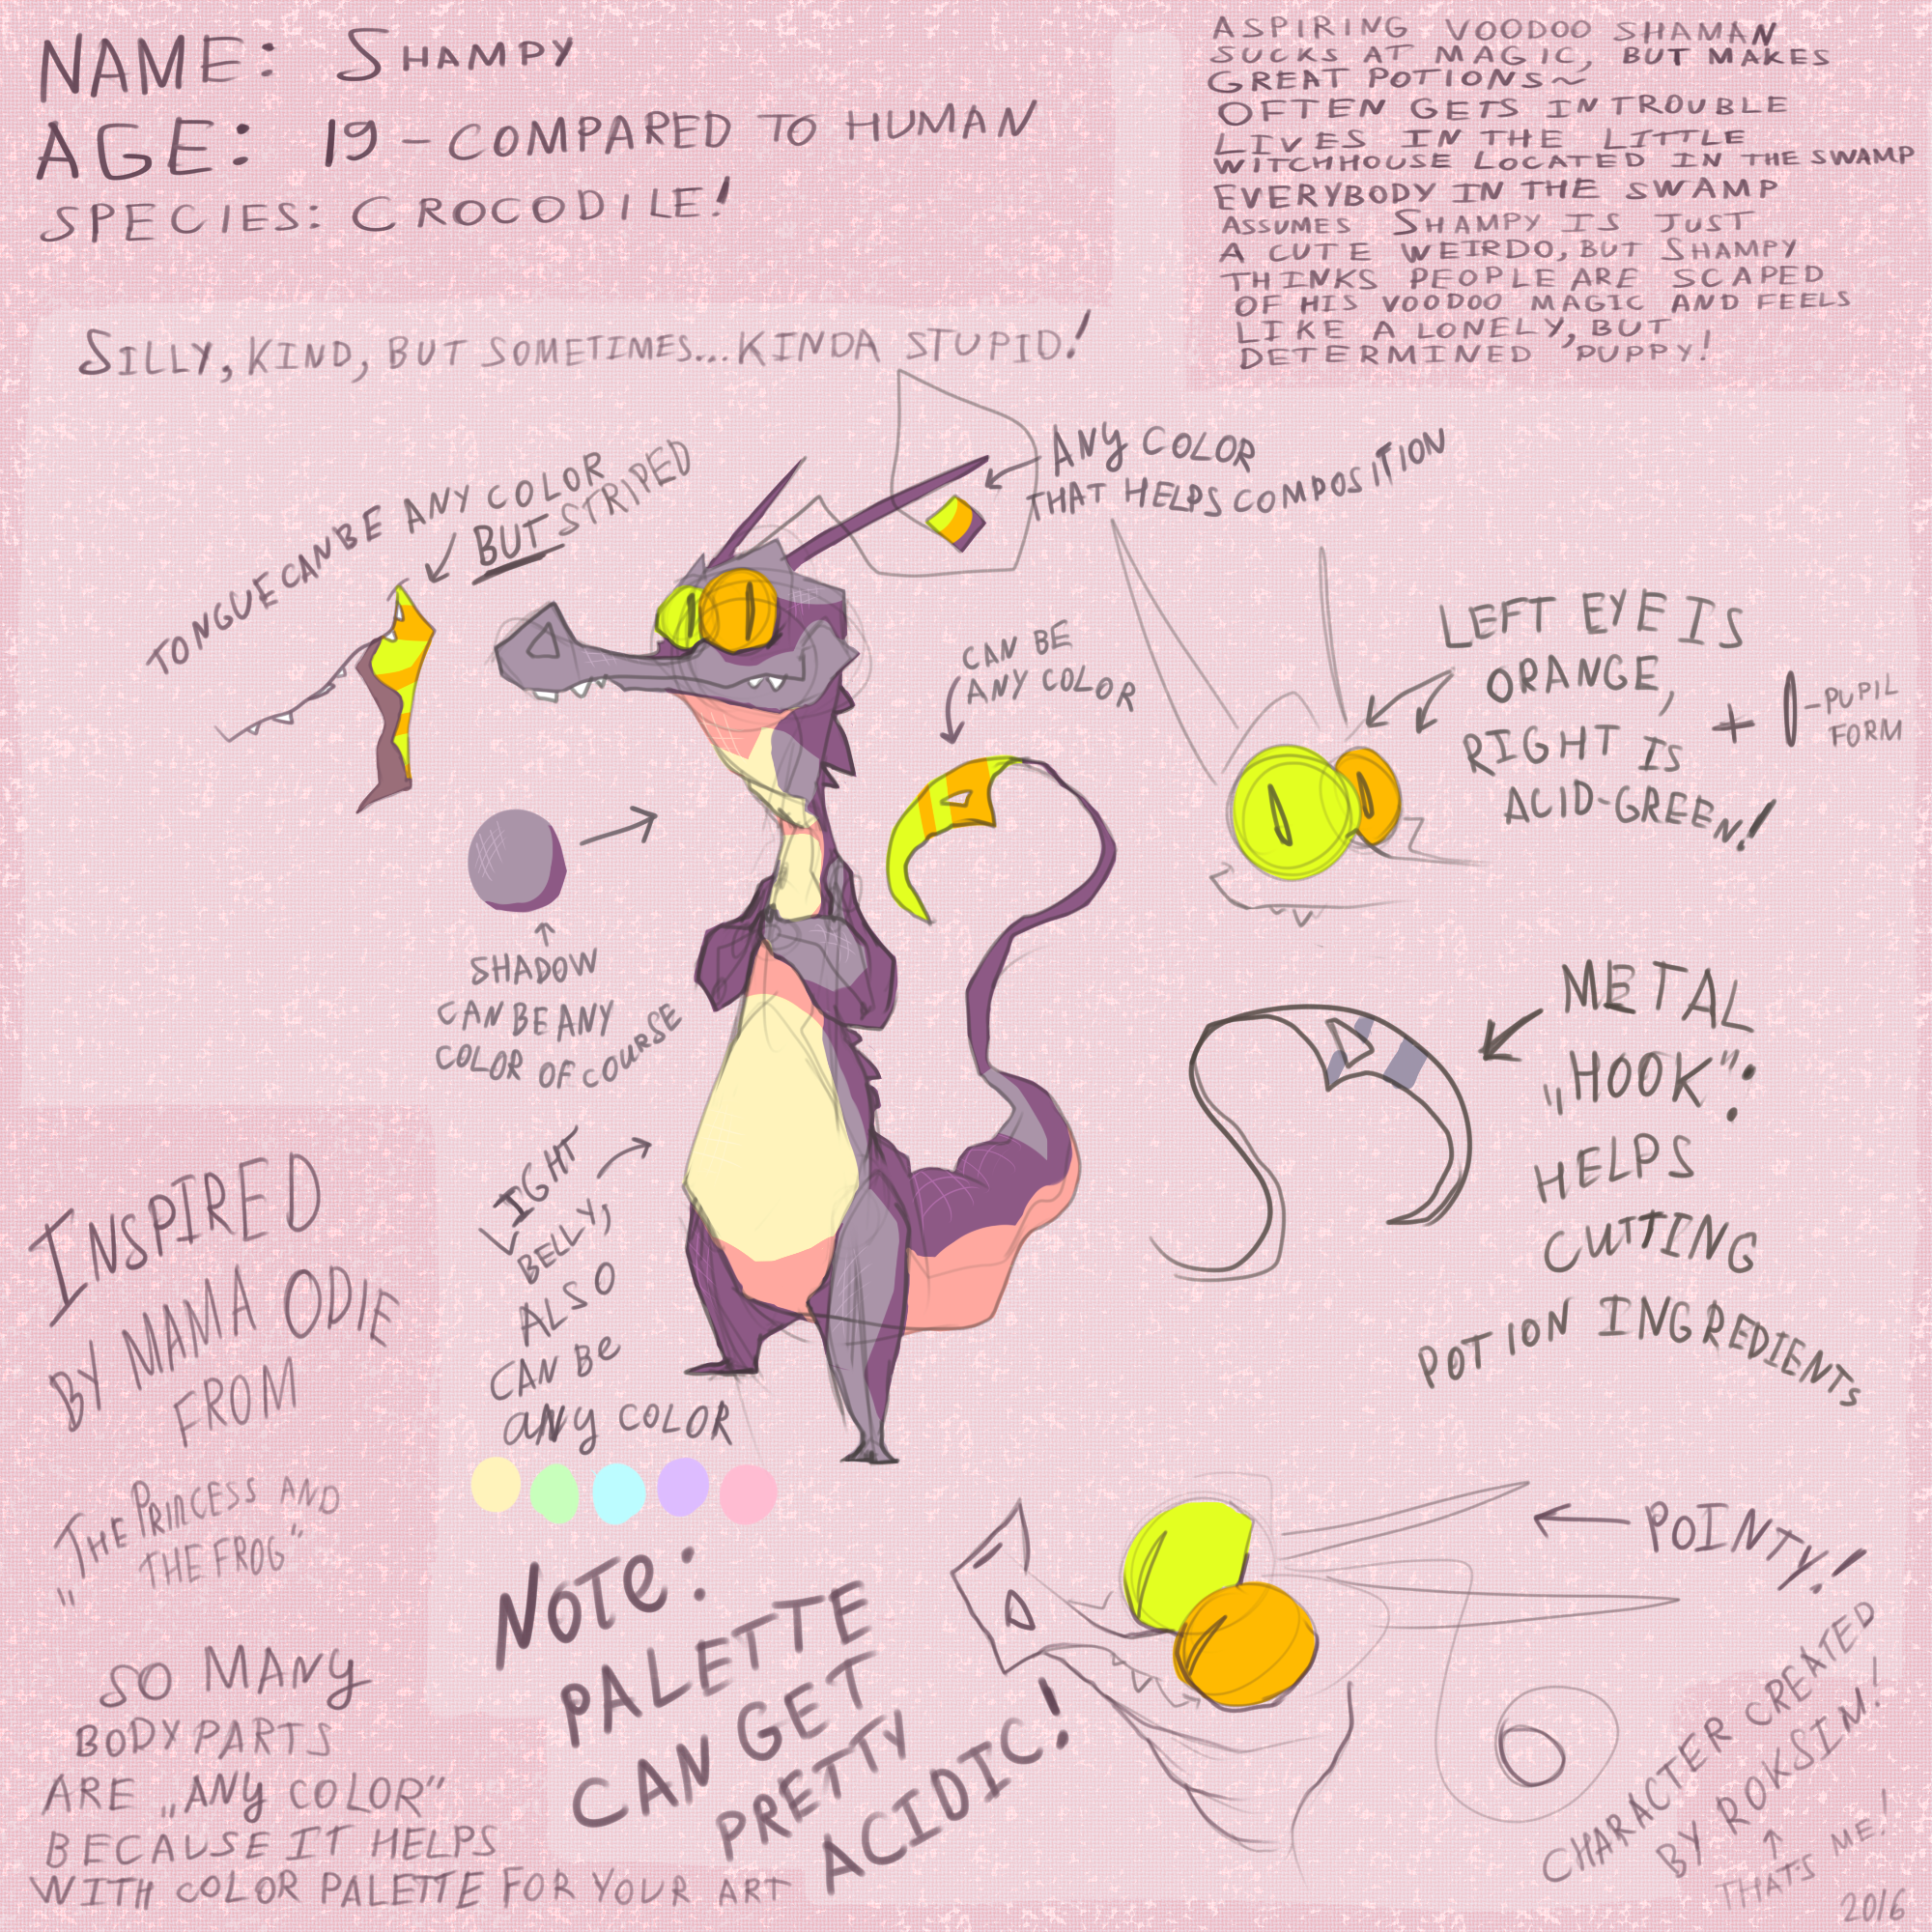 NAME: SHAMPY
AGE: 19 - COMPARED TO HUMAN
SPECIES: CROCODILE!
ASPIRING VOODOO SHAMAN
SUCKS AT MAGIC, BUT MAKES
GREAT POTIONS~
OFTEN GETS IN TROUBLE
LIVES IN THE LITTLE
WITCHHOUSE LOCATED IN THE SWAMP
EVERYBODY IN THE SWAMP
ASSUMES SHAMPY IS JUST
A CUTE WEIRDO, BUT SHAMPY
THINKS PEOPLE ARE SCAPED
OF HIS VOODOO MAGIC AND FEELS
LIKE A LONELY, BUT
DETERMINED PUPPY!
SILLY, KIND, BUT SOMETIMES... KINDA STUPID!
TONGUE CAN BE ANY COLOR
BUT STRIPED
ANY COLOR
THAT HELPS COMPOSITION
CAN BE
ANY COLOR
LEFT EYE IS
ORANGE,
RIGHT IS
ACID-GREEN!
+
-PUPIL
FORM
SHADOW
CAN BE ANY
COLOR OF COURSE
METAL
„HOOK":
HELPS
CUTTING
POTION INGREDIENTS
LIGHT
BELLY,
ALSO
CAN BE
ANY COLOR
INSPIRED
BY MAMA ODIE
FROM
„THE PRINCESS AND
THE FROG"
NOTE:
PALETTE
CAN GET
PRETTY
ACIDIC!
POINTY!
SO MANY
BODY PARTS
ARE „ANY COLOR"
BECAUSE IT HELPS
WITH COLOR PALETTE FOR YOUR ART
CHARACTER CREATED
BY ROKSIM!
THATS ME!
2016